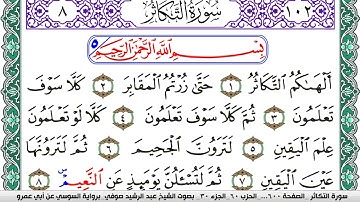 ٨ سُورَةُ التَّكَاثُرِ ١٠٢
بِسْمِ اللَّهِ الرَّحْمَٰنِ الرَّحِيمِ
أَلْهَىٰكُمُ التَّكَاثُرُ ١ حَتَّىٰ زُرْتُمُ الْمَقَابِرَ ٢ كَلَّا سَوْفَ
تَعْلَمُونَ ٣ ثُمَّ كَلَّا سَوْفَ تَعْلَمُونَ ٤ كَلَّا لَوْ تَعْلَمُونَ
عِلْمَ الْيَقِينِ ٥ لَتَرَوُنَّ الْجَحِيمَ ٦ ثُمَّ لَتَرَوُنَّهَا
عَيْنَ الْيَقِينِ ٧ ثُمَّ لَتُسْـَٔلُنَّ يَوْمَئِذٍ عَنِ النَّعِيمِ ٨
سورة التكاثر الصفحة ٦٠٠... الحزب ٦٠ الجزء ٣٠ بصوت الشيخ عبد الرشيد صوفي برواية السوسي عن أبي عمرو